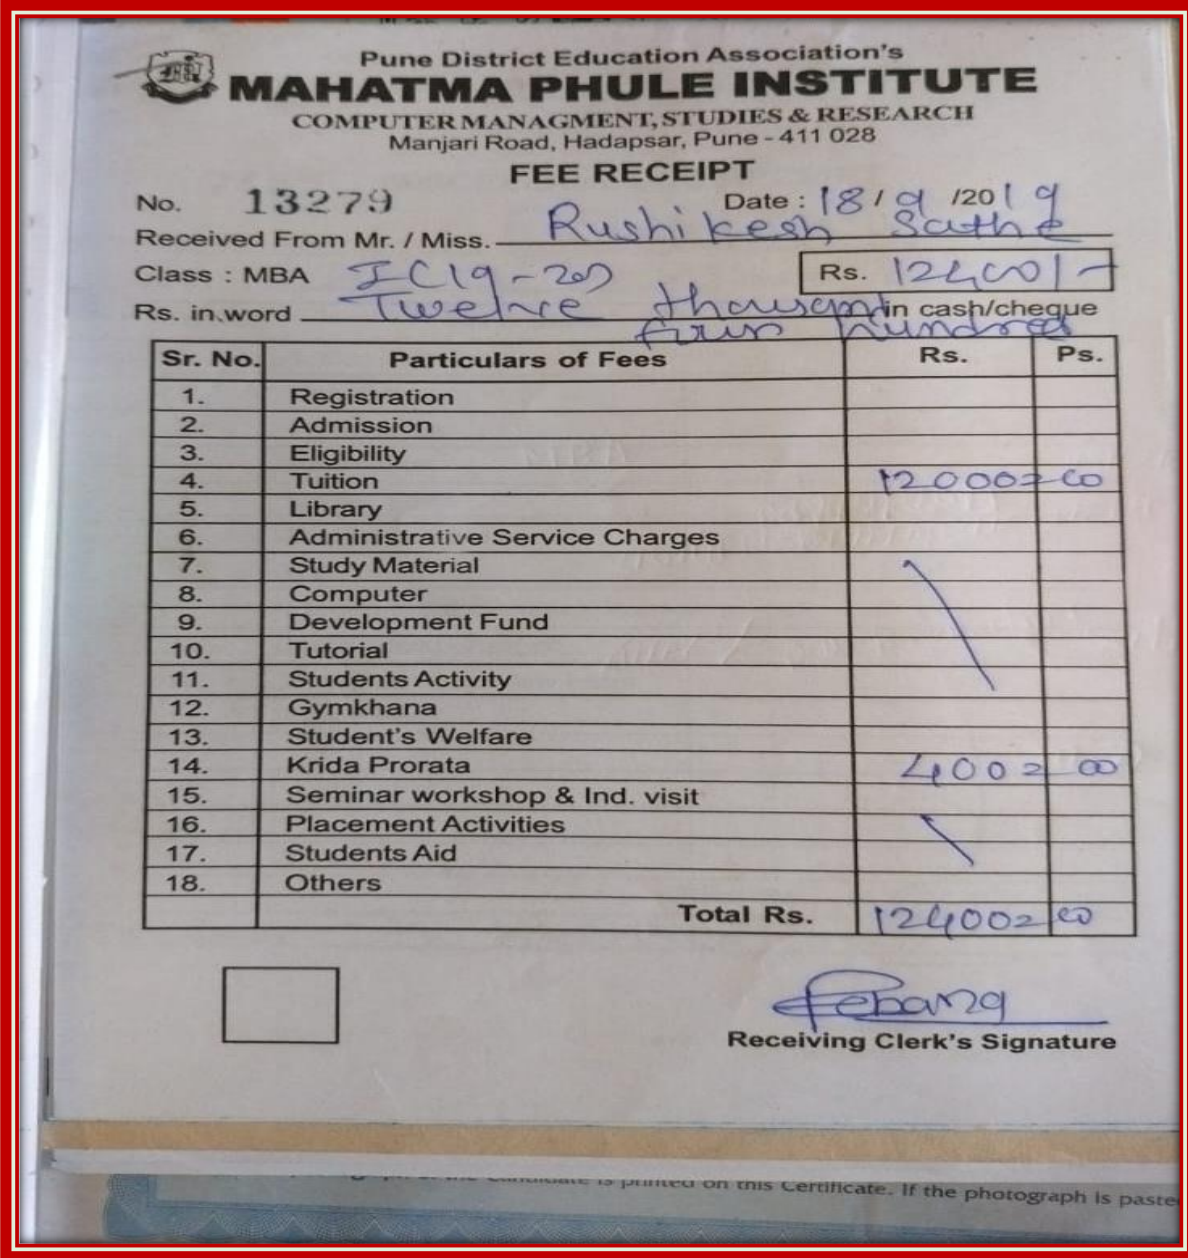 Pune District Education Association's
MAHATMA PHULE INSTITUTE
COMPUTER MANAGMENT, STUDIES & RESEARCH
Manjari Road, Hadapsar, Pune - 411 028
FEE RECEIPT
No. 13279 Date : 18 / 9 /2019
Received From Mr. / Miss. Rushikesh Sathe
Class : MBA I (19-20) Rs. 12400/-
Rs. in word Twelve thousand in cash/cheque
four hundred
Sr. No. Particulars of Fees Rs. Ps.
1. Registration
2. Admission
3. Eligibility
4. Tuition 12000=00
5. Library
6. Administrative Service Charges
7. Study Material
8. Computer
9. Development Fund
10. Tutorial
11. Students Activity
12. Gymkhana
13. Student's Welfare
14. Krida Prorata 400=00
15. Seminar workshop & Ind. visit
16. Placement Activities
17. Students Aid
18. Others
Total Rs. 12400=00
Receiving Clerk's Signature
is printed on this Certificate. If the photograph is paste